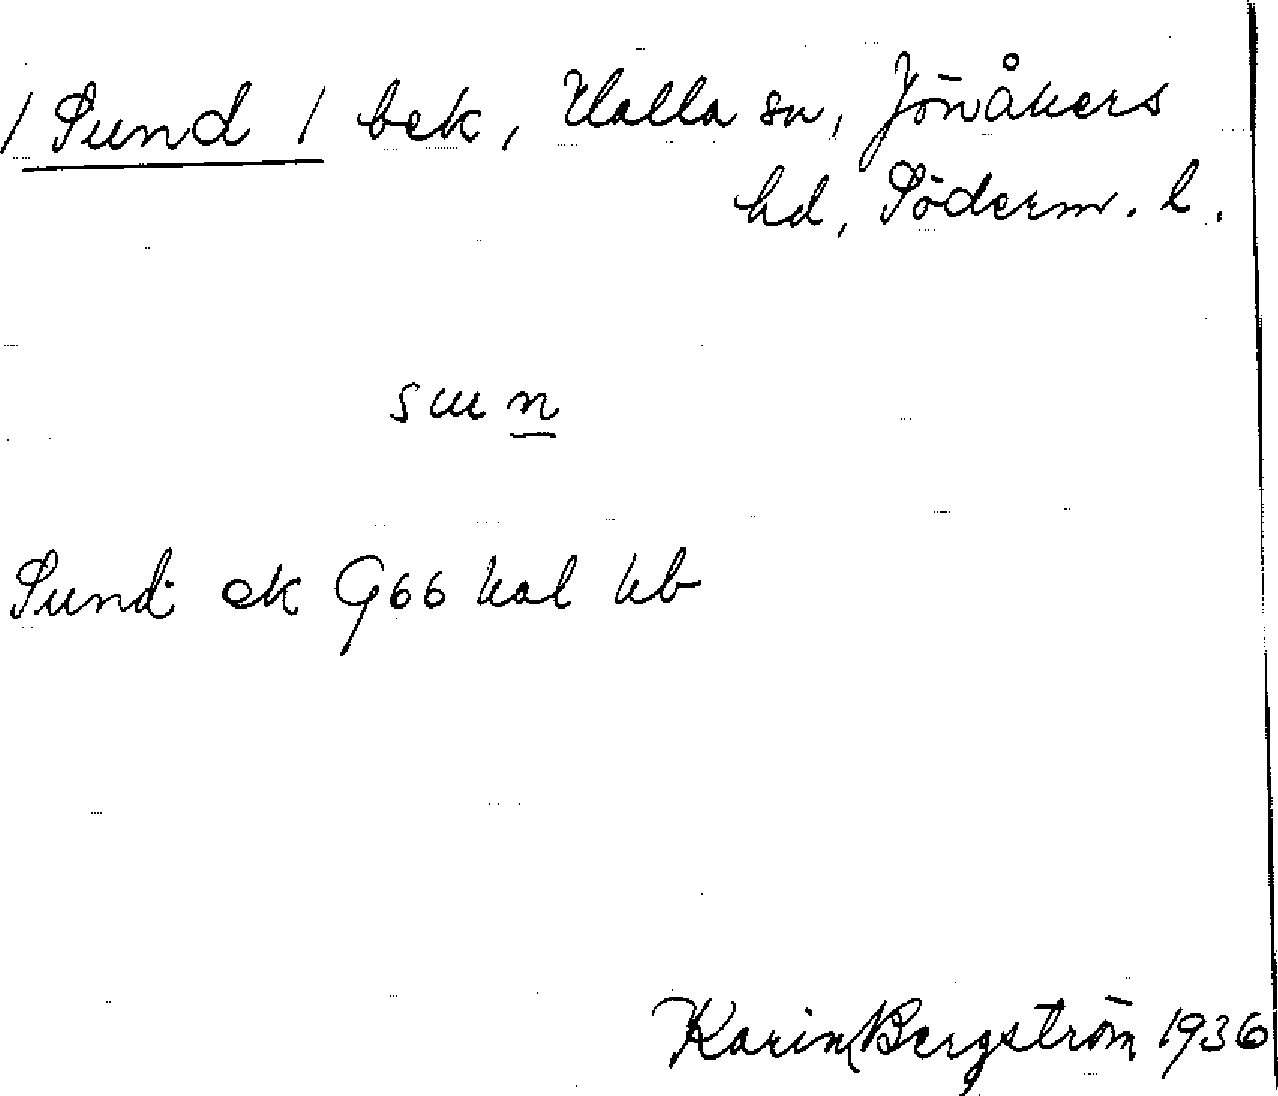 / Sund / bek, Halla sn, Jönåkers
hd, Söderm. l.
sun
Sund ek G66 kal kb
Karin Bergström 1936